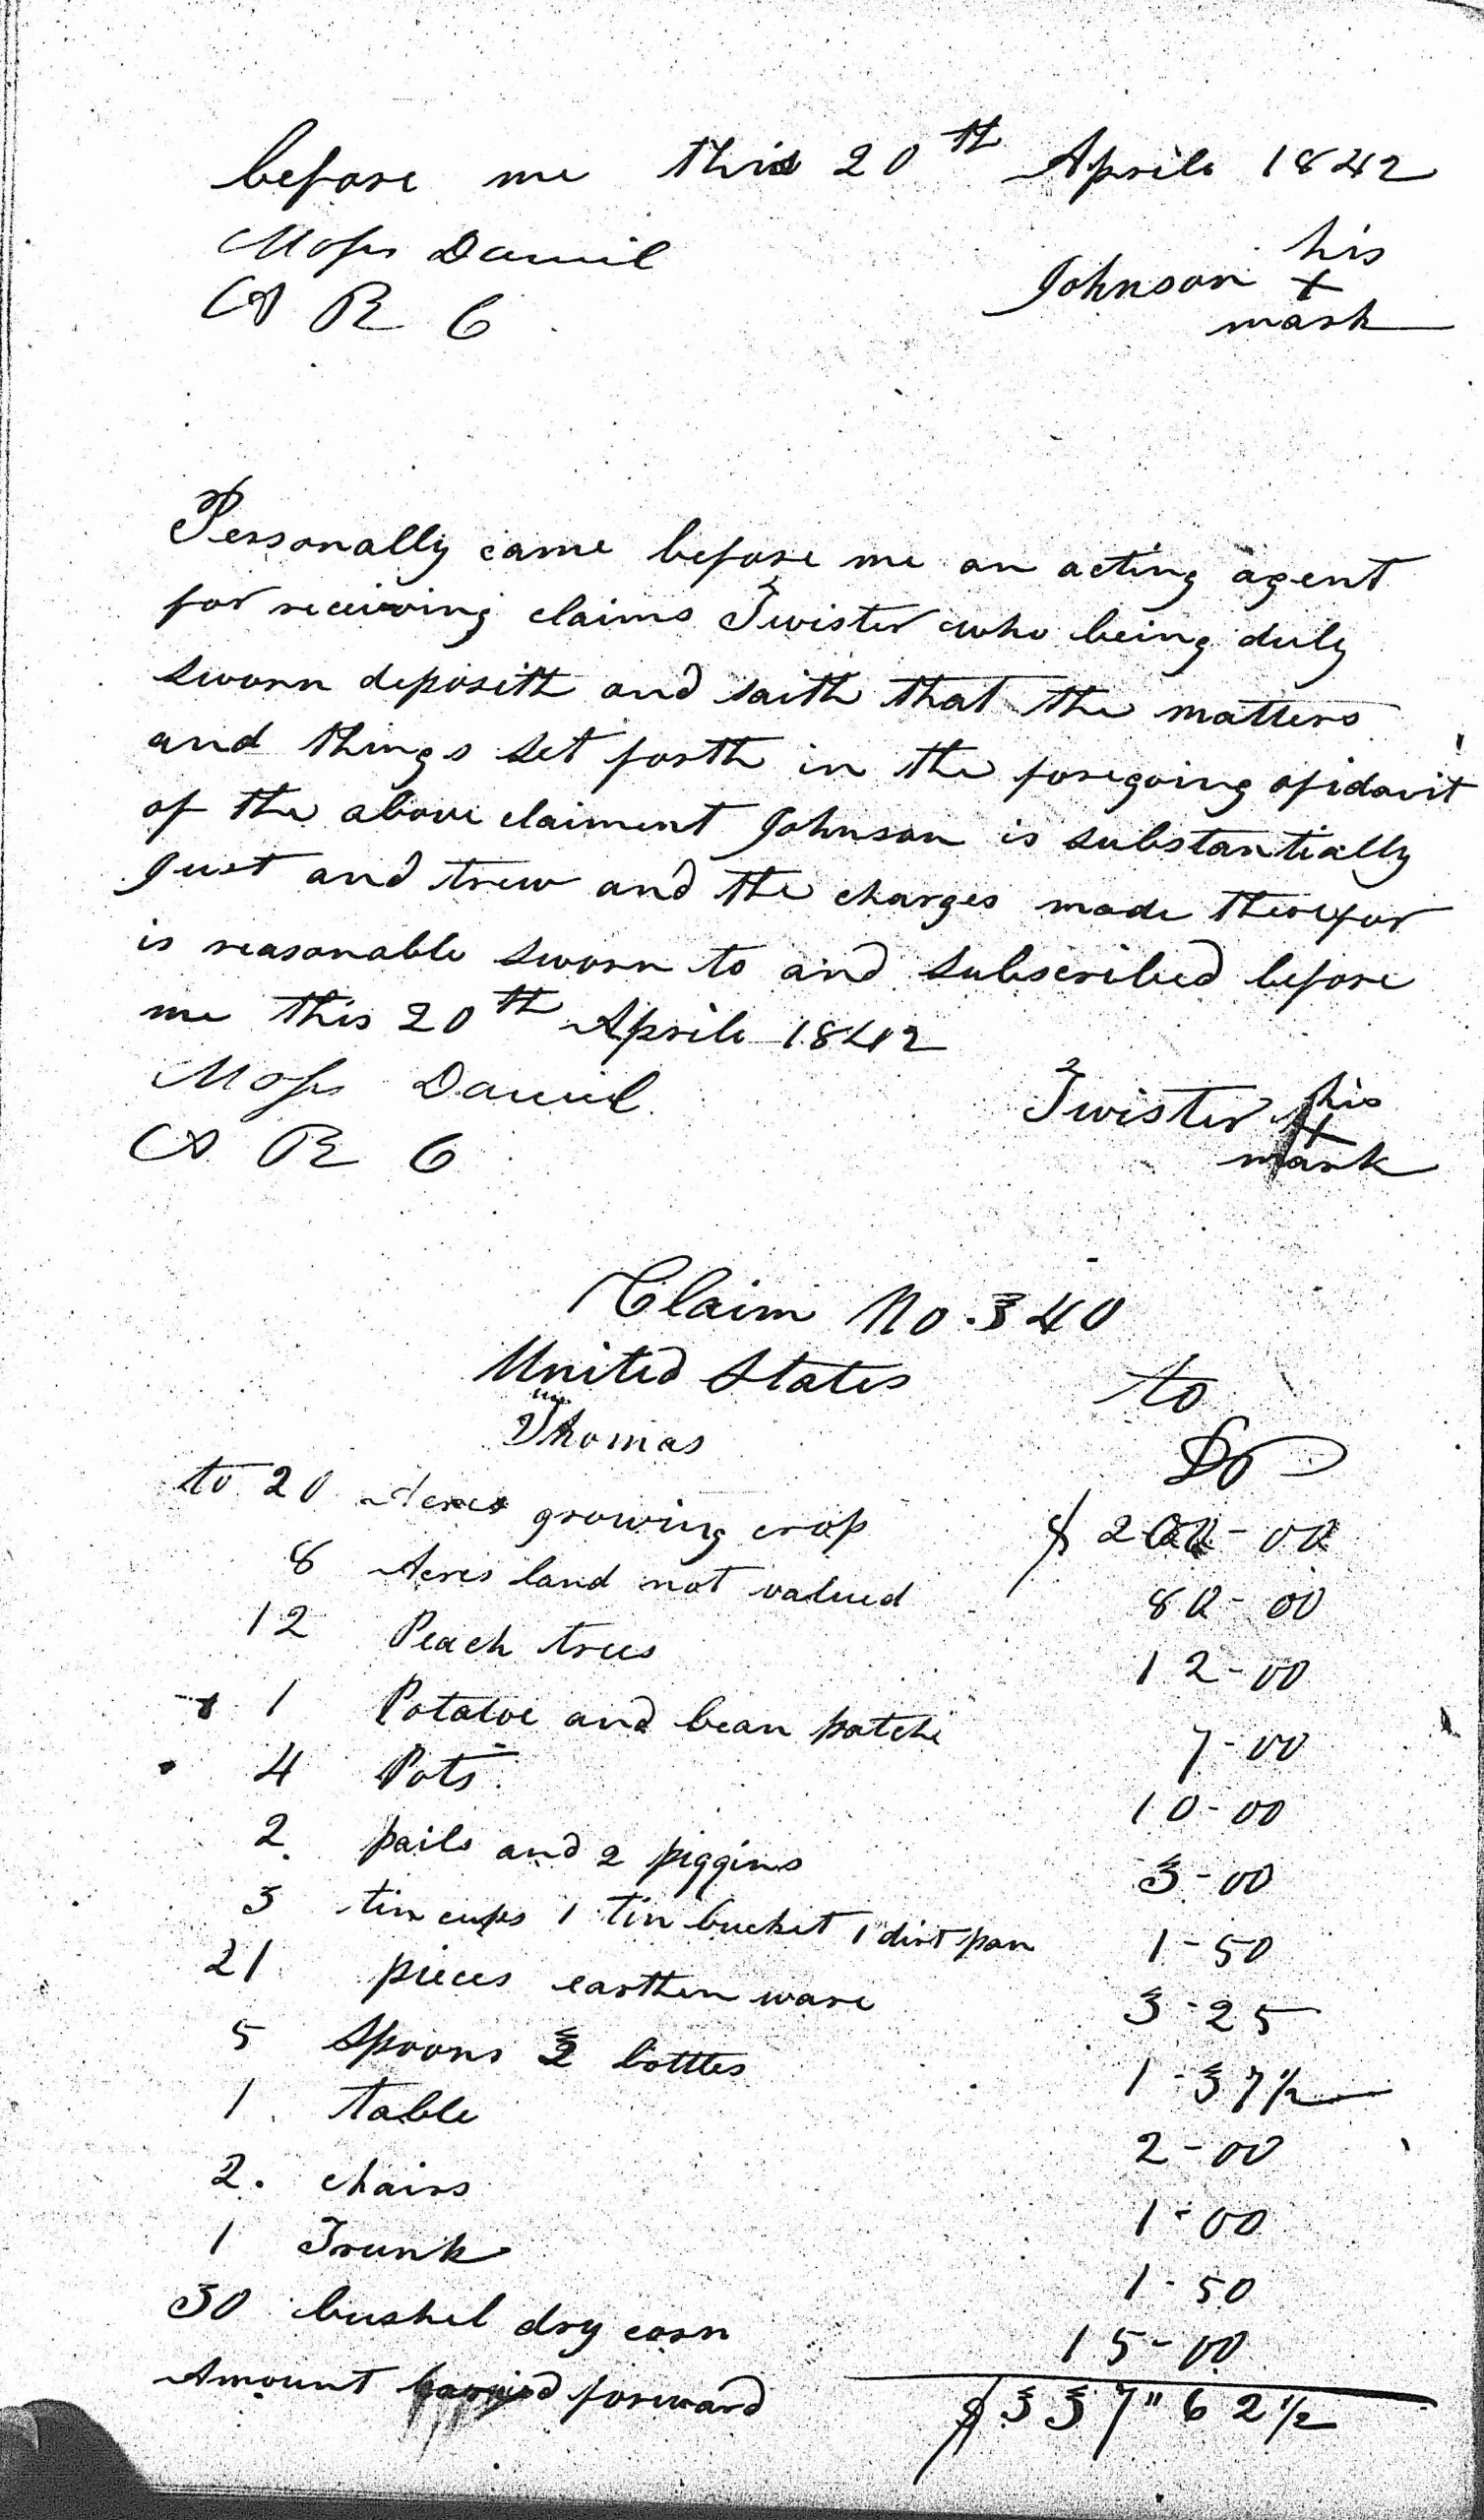 before me this 20th Aprile 1842
Moses Daniel
his
Johnson +
A R C
mark
Personally came before me an acting agent
for receiving claims Twister who being duly
sworn deposith and saith that the matters
and things set forth in the foregoing afidavit
of the above claiment Johnson is substantially
Just and trew and the charges made therefor
is reasonable sworn to and subscribed before
me this 20th Aprile 1842
Moses Daniel
Twister his
+
A R C
mark
Claim No. 340
United States to
Thomas Dr
to 20 Acres growing crop $ 200-00
8 Acres land not valued 80-00
12 Peach trees 12-00
1 Potatoe and bean patche 7-00
4 Pots 10-00
2 pails and 2 piggins 3-00
3 tin cups 1 tin bucket 1 dirt pan 1-50
21 pieces earthen ware 3-25
5 spoons bottles 1-37½
1 table 2-00
2. chairs 1-00
1 Trunk 1-50
30 bushel dry corn 15-00
Amount carried forward $337"62½